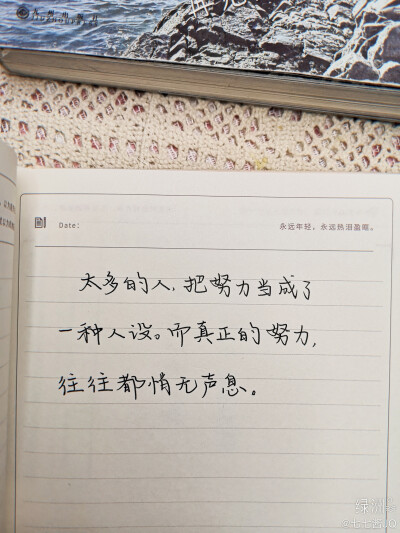 Date:
永远年轻、永远热泪盈眶。
太多的人,把努力当成了
一种人设。而真正的努力,
往往都悄无声息。
绿洲